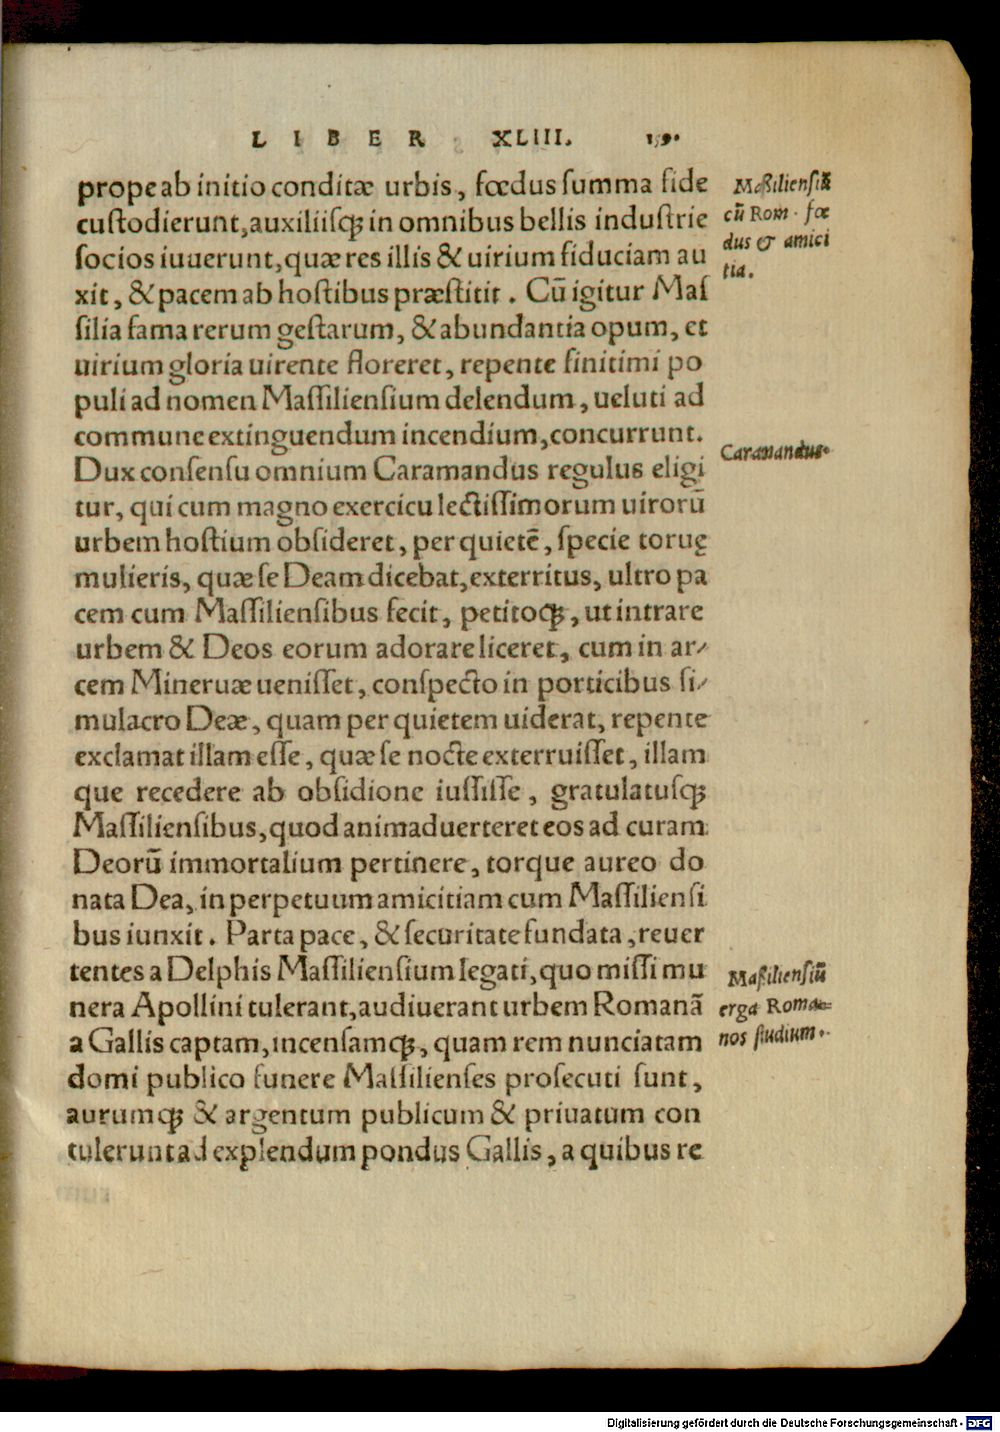 LIBER XLIII. 159.
prope ab initio conditæ urbis, fœdus summa fide
custodierunt, auxiliisq́ꝫ in omnibus bellis industrie
socios iuuerunt, quæ res illis & uirium fiduciam au
xit, & pacem ab hostibus præstitit. Cū igitur Mas
silia fama rerum gestarum, & abundantia opum, et
uirium gloria uirente floreret, repente finitimi po
puli ad nomen Massiliensium delendum, ueluti ad
commune extinguendum incendium, concurrunt.
Dux consensu omnium Caramandus regulus eligi
tur, qui cum magno exercicu lectissimorum uirorū
urbem hostium obsideret, per quietē, specie toruę
mulieris, quæ se Deam dicebat, exterritus, ultro pa
cem cum Massiliensibus fecit, petitoq́ꝫ, ut intrare
urbem & Deos eorum adorare liceret, cum in ar/
cem Mineruæ uenisset, conspecto in porticibus si/
mulacro Deæ, quam per quietem uiderat, repente
exclamat illam esse, quæ se nocte exterruisset, illam
que recedere ab obsidione iussisse, gratulatusq́ꝫ
Massiliensibus, quod animaduerteret eos ad curam
Deorū immortalium pertinere, torque aureo do
nata Dea, in perpetuum amicitiam cum Massiliensi
bus iunxit. Parta pace, & securitate fundata, reuer
tentes a Delphis Massiliensium legati, quo missi mu
nera Apollini tulerant, audiuerant urbem Romanā
a Gallis captam, incensamq́ꝫ, quam rem nunciatam
domi publico funere Massilienses prosecuti sunt,
aurumq́ꝫ & argentum publicum & priuatum con
tulerunt ad explendum pondus Gallis, a quibus re
Maßiliensiū
cū Rom. fœ
dus & amici
tia.
Caramandus.
Maßiliensiū
erga Roma=
nos studium.
Digitalisierung gefördert durch die Deutsche Forschungsgemeinschaft - DFG